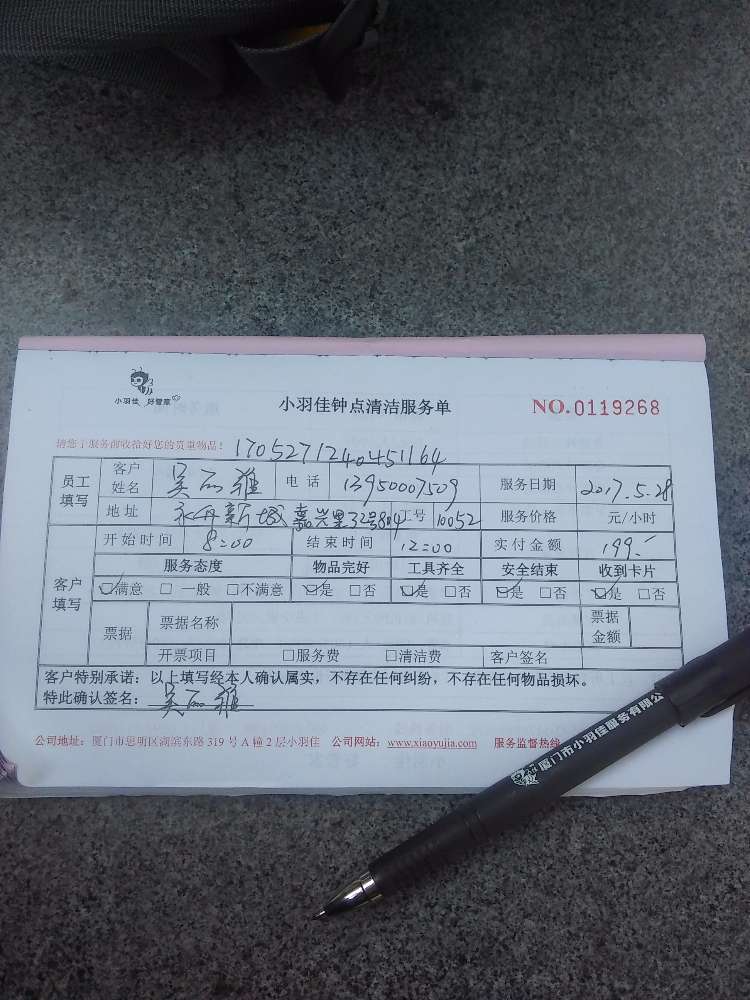 小羽佳 好管家
小羽佳钟点清洁服务单
NO.0119268
请您于服务前收拾好您的贵重物品！ 1705271240451164
员工填写 客户姓名 吴丽雅 电话 13950007509 服务日期 2017.5.28
地址 嘉兴里32号804 工号 10052 服务价格 元/小时
客户填写 开始时间 8:00 结束时间 12:00 实付金额 199.-
服务态度 物品完好 工具齐全 安全结束 收到卡片
☑满意 □一般 □不满意 ☑是 □否 ☑是 □否 ☑是 □否 ☑是 □否
票据 票据名称 票据金额
开票项目 □服务费 □清洁费 客户签名
客户特别承诺：以上填写经本人确认属实，不存在任何纠纷，不存在任何物品损坏。
特此确认签名：吴丽雅
公司地址：厦门市思明区湖滨东路 319 号 A 幢 2 层小羽佳 公司网站：www.xiaoyujia.com 服务监督热线
厦门市小羽佳服务有限公